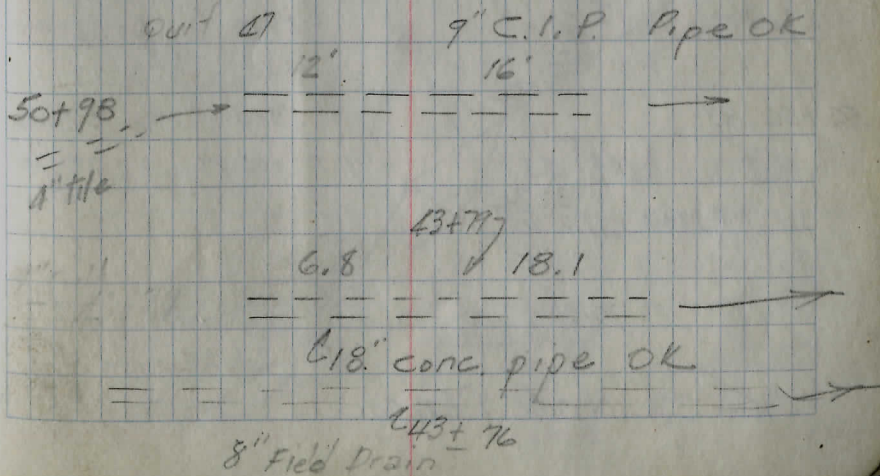 9" C.I.P. Pipe OK
12' 16'
50+98
4" tile
43+79
6.8 18.1
18" conc. pipe OK
43±76
8" Field Drain